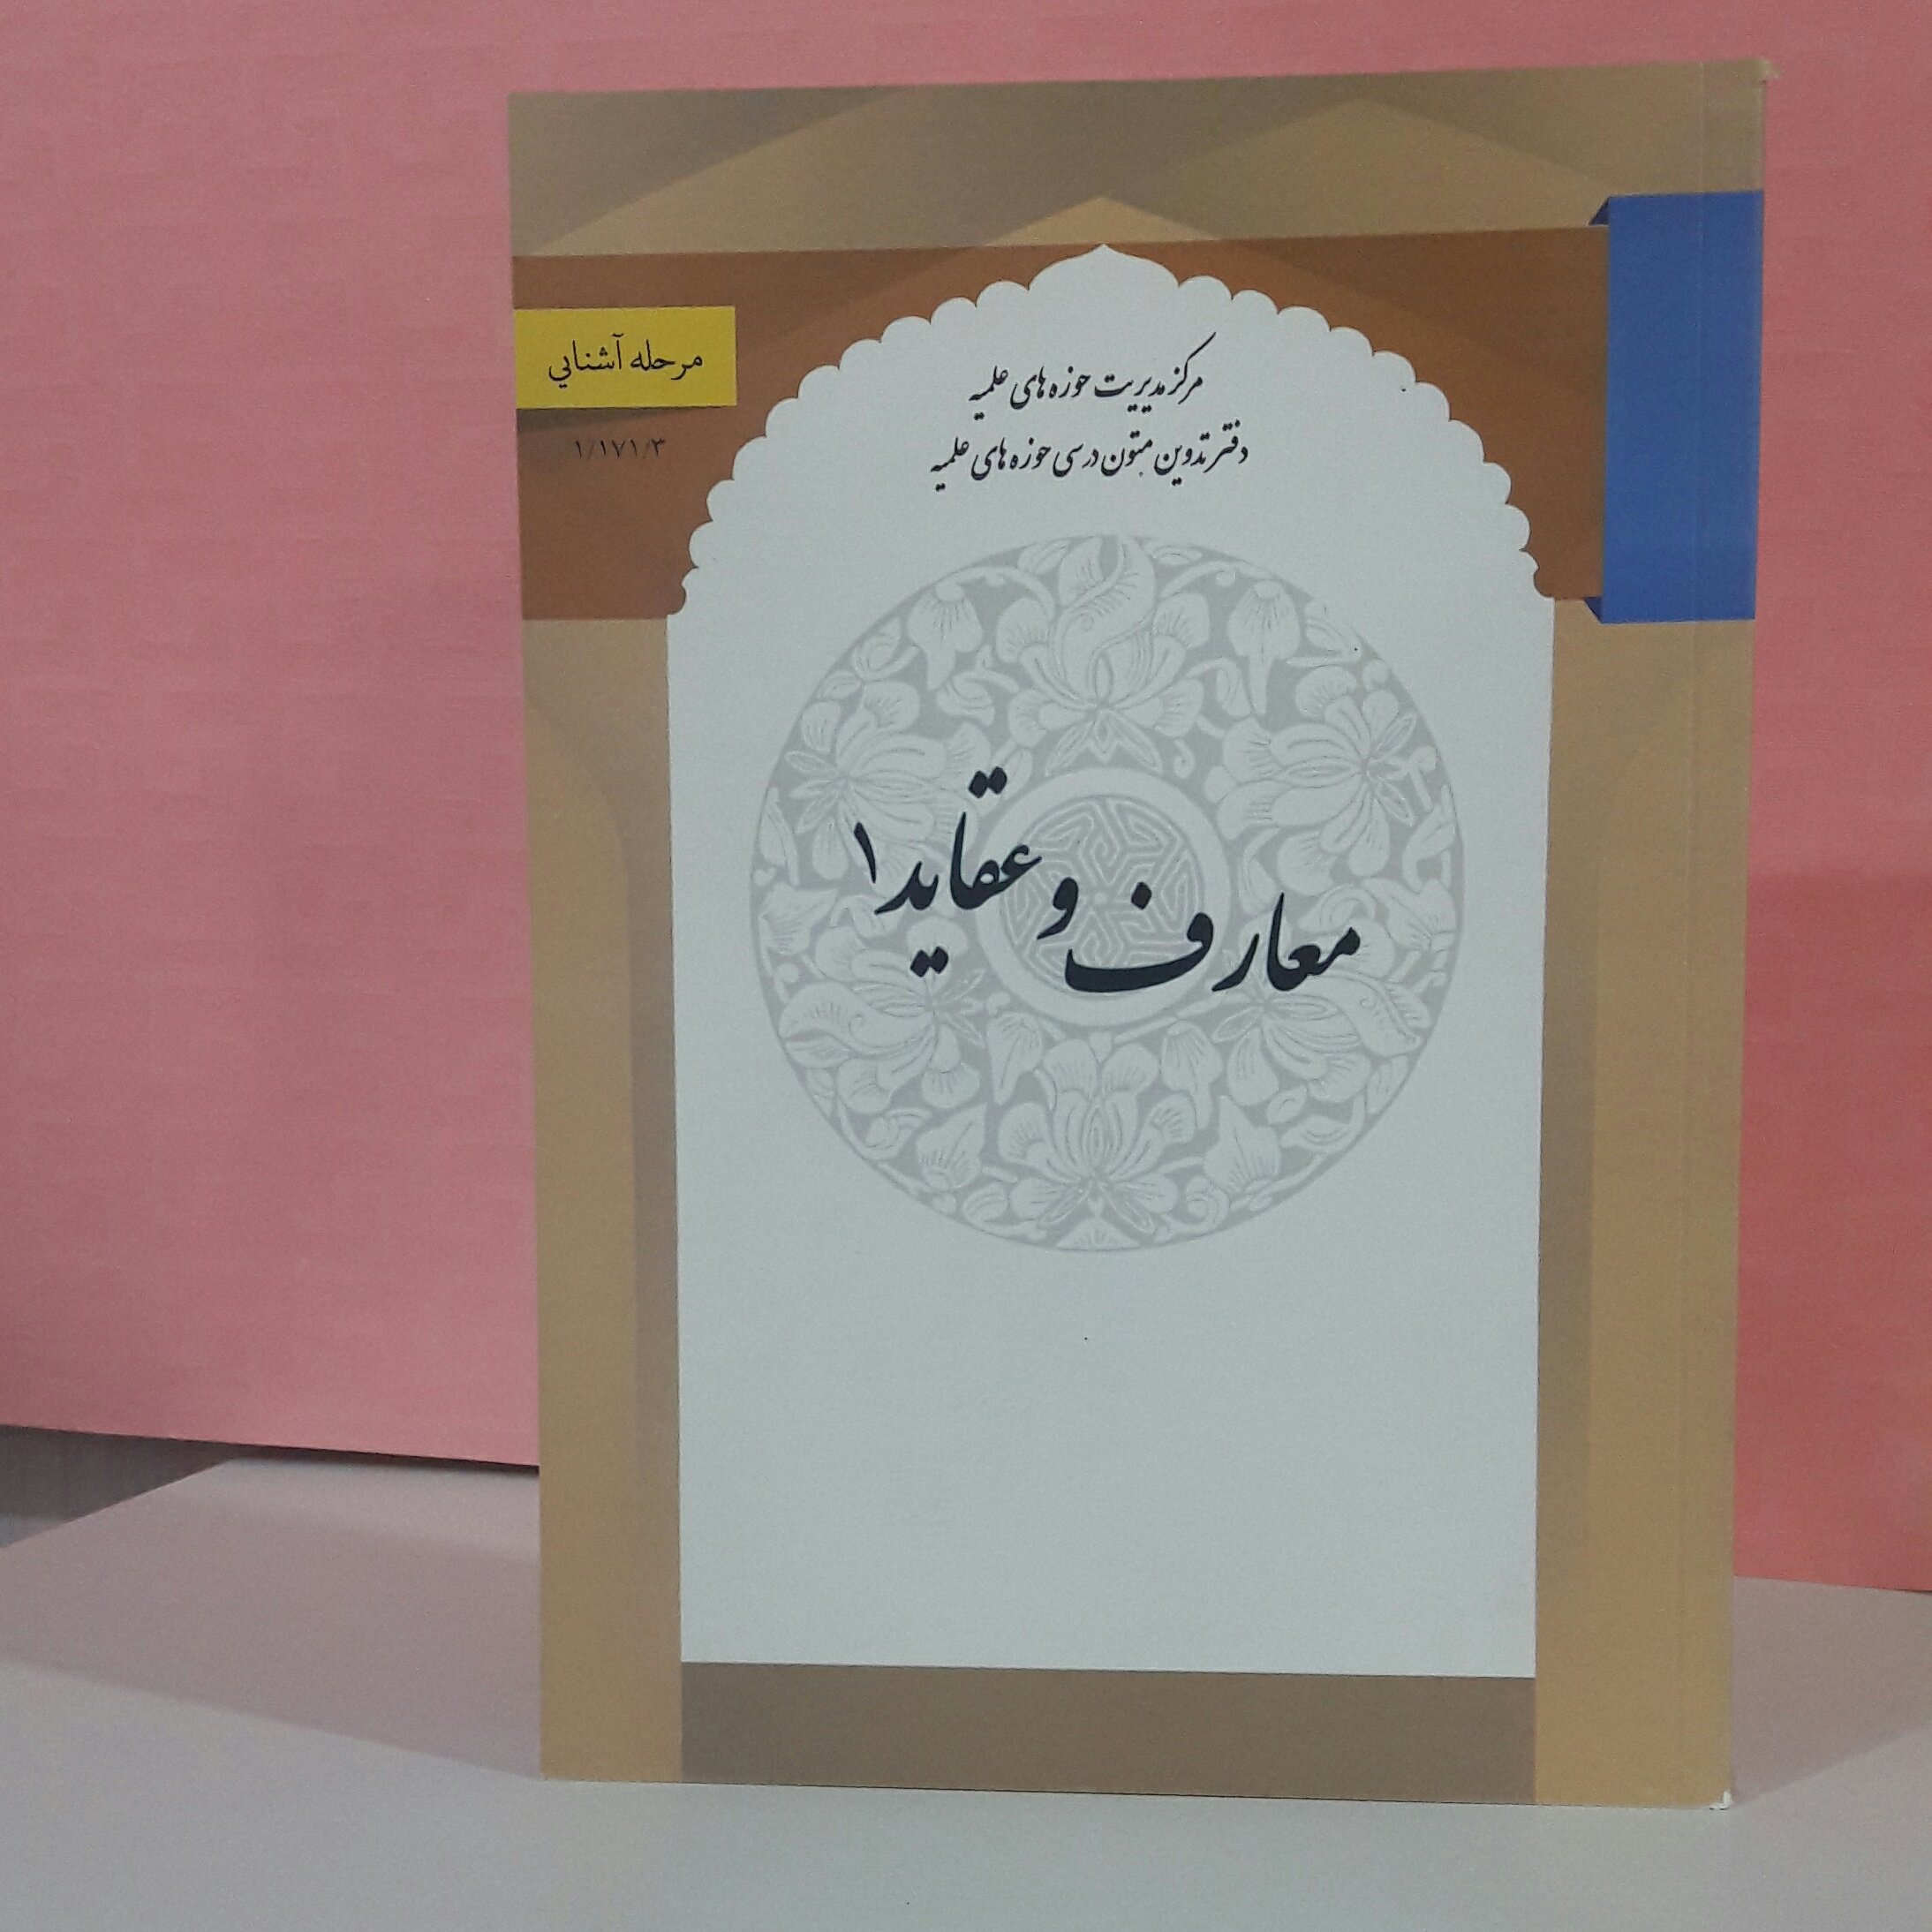 مرکز مدیریت حوزه های علمیه
دفتر تدوین متون درسی حوزه های علمیه
مرحله آشنایي
۱/۱۷۱/۳
معارف و عقاید ۱